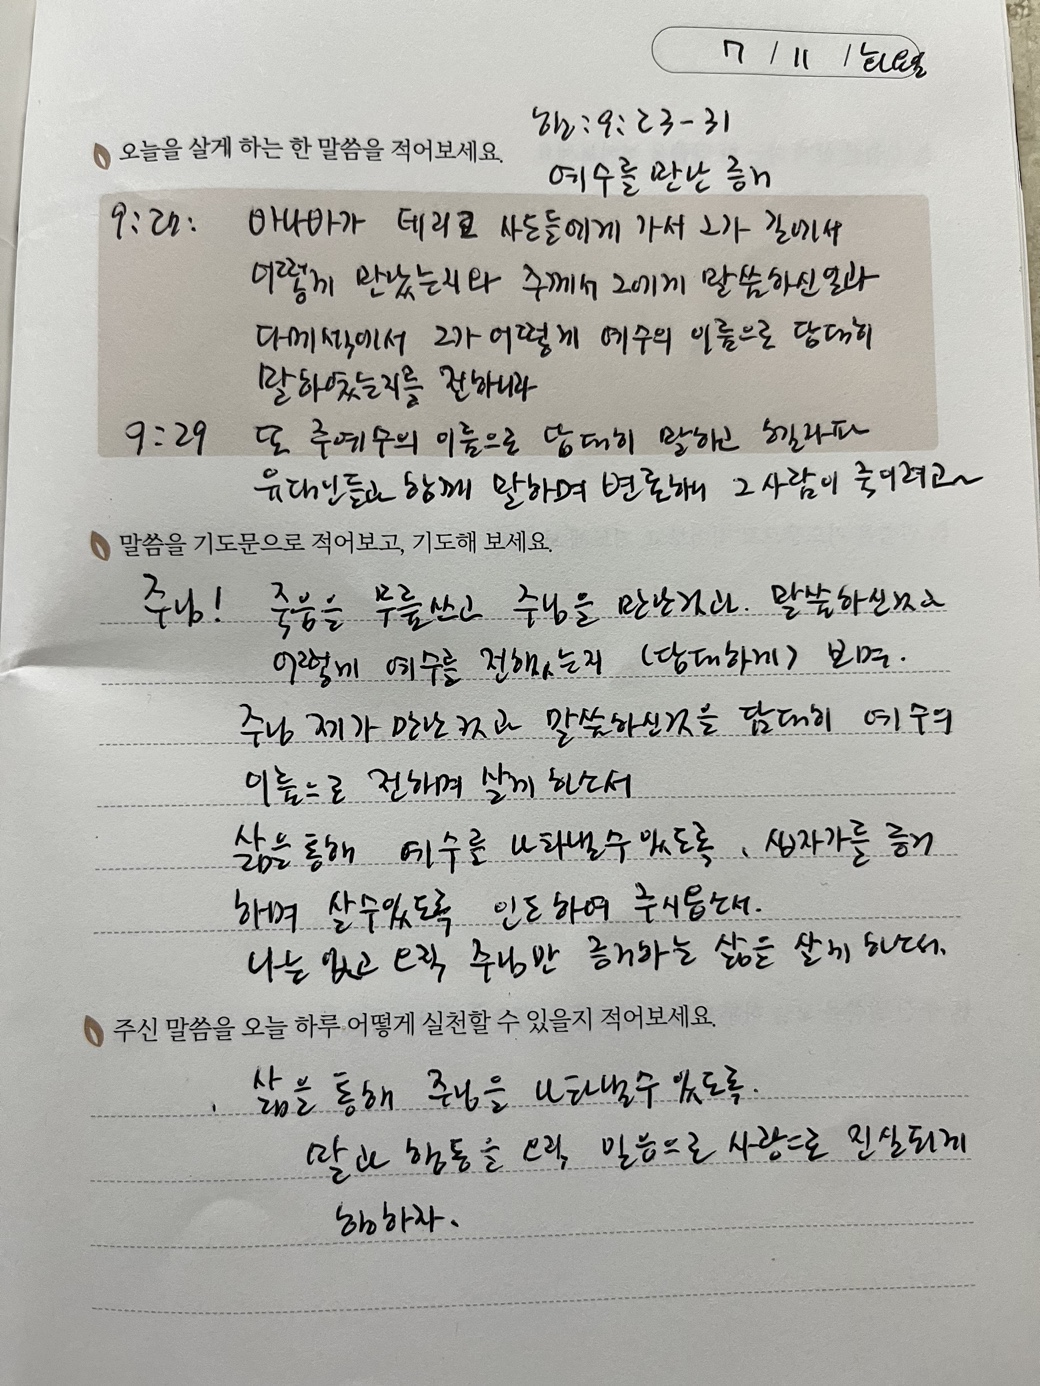 7 / 11 / 화요일
행:9:23-31
오늘을 살게 하는 한 말씀을 적어보세요.
예수를 만난 증거
9:27: 바나바가 데리고 사도들에게 가서 그가 길에서
어떻게 만났는지와 주께서 그에게 말씀하신일과
다메섹에서 그가 어떻게 예수의 이름으로 담대히
말하였는지를 전하니라
9:29 또 주예수의 이름으로 담대히 말하고 헬라파
유대인들과 함께 말하며 변론하니 그 사람이 죽이려고~
말씀을 기도문으로 적어보고, 기도해 보세요.
주님! 죽음을 무릎쓰고 주님을 만난것과. 말씀하신것과
어떻게 예수를 전했는지 (담대하게) 보며.
주님 제가 만난것과 말씀하신것을 담대히 예수의
이름으로 전하며 살게 하소서
삶을 통해 예수를 나타낼수 있도록, 십자가를 증거
하며 살수있도록 인도하여 주시옵소서.
나는 없고 오직 주님만 증거하는 삶을 살게 하소서.
주신 말씀을 오늘 하루 어떻게 실천할 수 있을지 적어보세요.
삶을 통해 주님을 나타낼수 있도록.
말과 행동을 오직 믿음으로 사랑으로 진실되게
행하자.